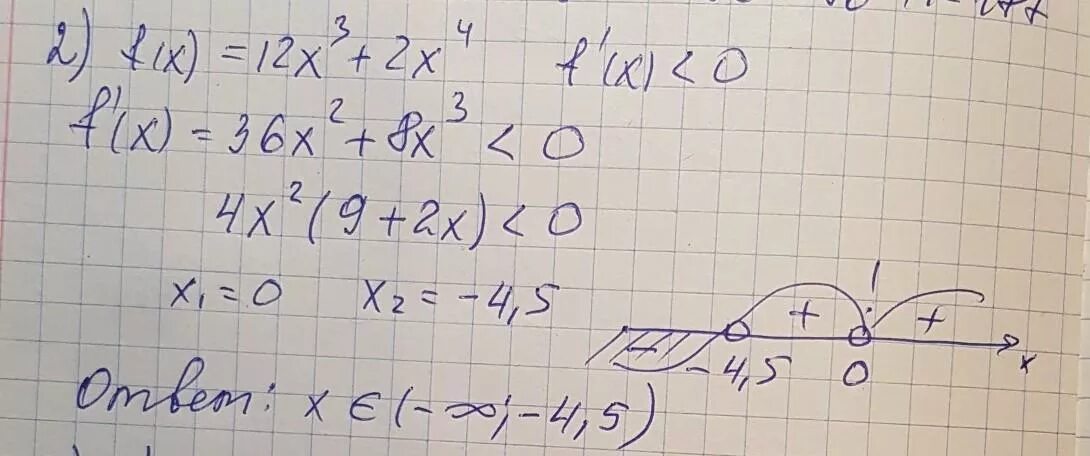 2) f(x) = 12x³ + 2x⁴ f'(x) < 0
f'(x) = 36x² + 8x³ < 0
4x² (9 + 2x) < 0
x₁ = 0 x₂ = -4,5
+ +
- -4,5 0 x
Ответ: x ∈ (-∞; -4,5)